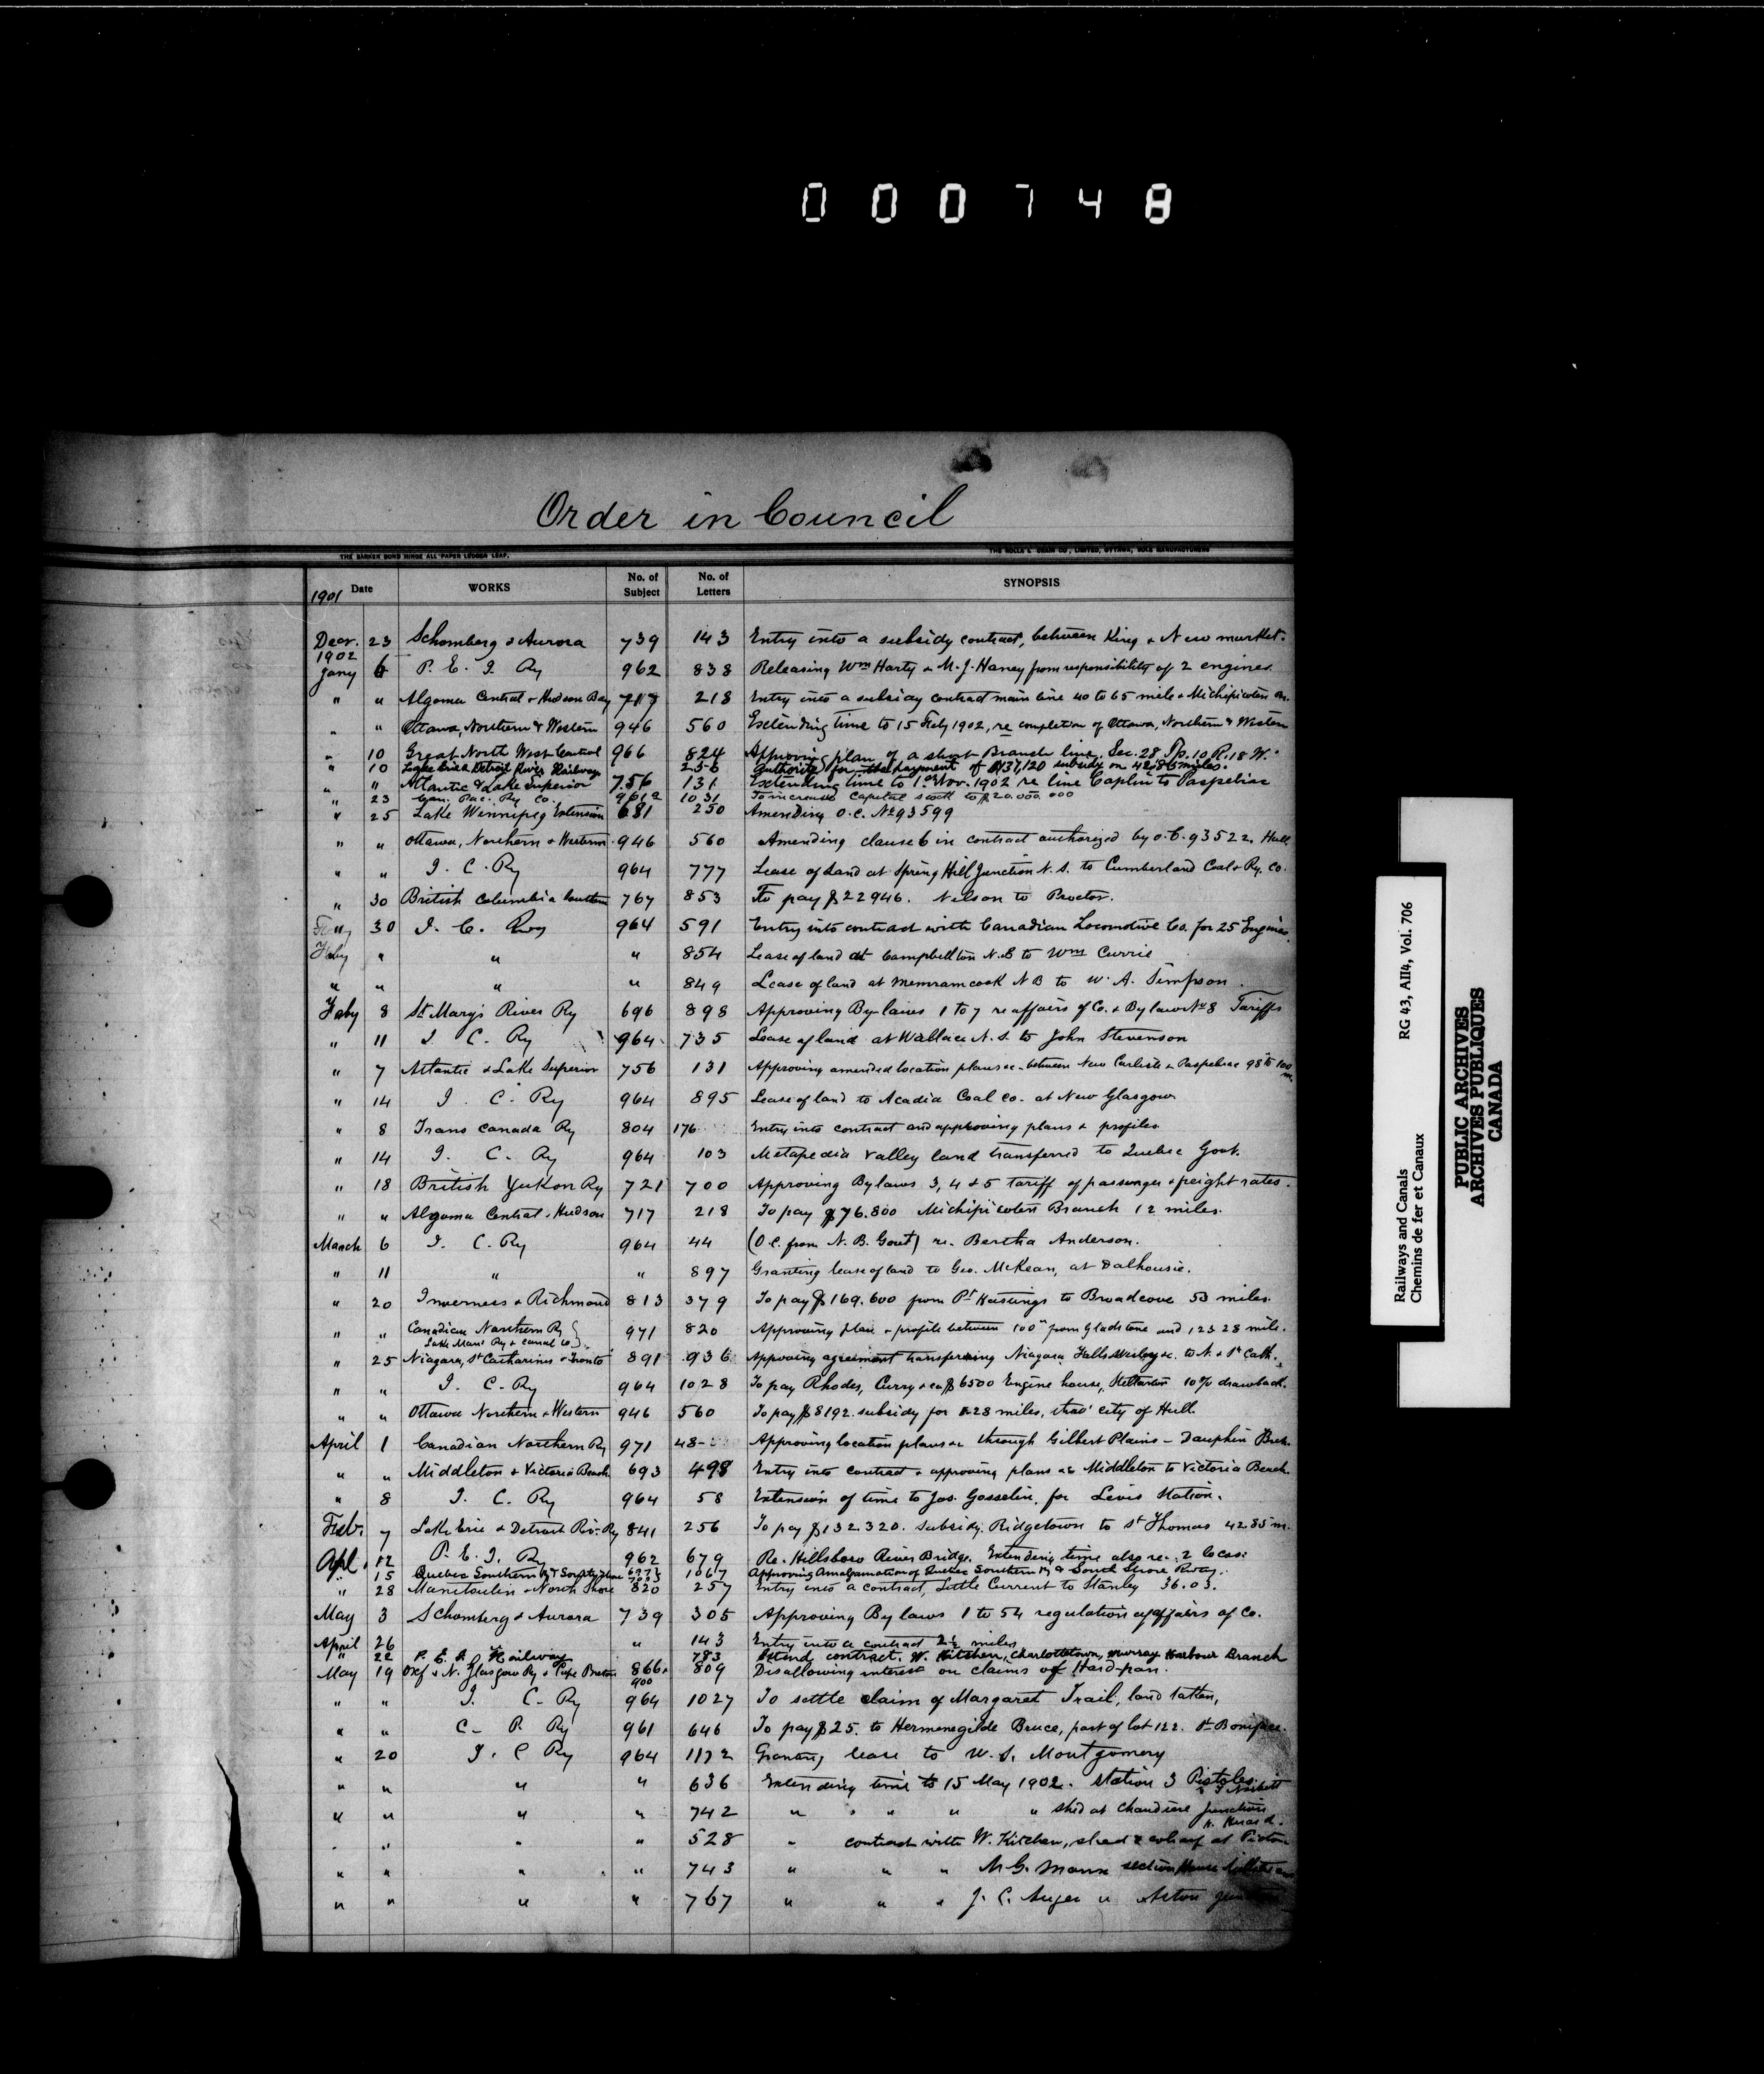 000748
Order in Council
THE BARKER BOND HINGE ALL PAPER LEDGER LEAF.
1901 Date WORKS No. of Subject No. of Letters SYNOPSIS
Decr. 23 Schomberg & Aurora 739 143 Entry into a subsidy contract, between King & Newmarket.
1902
Jany 6 P. E. I. Ry 962 838 Releasing Wm Harty & M. J. Haney from responsibility of 2 engines.
" " Algoma Central & Hudson Bay 717 218 Entry into a subsidy contract main line 40 to 65 mile & Michipicoten Bn.
" " Ottawa, Northern & Western 946 560 Extending time to 15 Feby 1902, re completion of Ottawa, Northern & Western
" 10 Great North West Central 966 824 Approving plan of a short Branch line, Sec. 28 Tp. 10 R. 18 W.
" 10 Lake Erie & Detroit River Railway 256 Authority for the payment of $137,120 subsidy on 42.85 miles.
" " Atlantic & Lake Superior 756 131 Extending time to 1st Nov. 1902 re line Caplin to Paspebiac
" 23 Can. Pac. Ry Co. 961 1031 To increase Capital stock to $20.000.000
" 25 Lake Winnipeg Extension 681 250 Amending O.C. No 93599
" " Ottawa, Northern & Western 946 560 Amending clause 6 in contract authorized by O.C. 93522, Hull
" " I. C. Ry 964 777 Lease of land at Spring Hill Junction N. S. to Cumberland Coal & Ry. Co.
" 30 British Columbia Southern 767 853 To pay $22946. Nelson to Proctor.
30 I. C. Rwy 964 591 Entry into contract with Canadian Locomotive Co. for 25 Engines.
Feby " " " 854 Lease of land at Campbellton N.B to Wm Currie
" " " " 849 Lease of land at Memramcook N B to W. A. Simpson
Feby 8 St Mary's River Ry 696 898 Approving By-laws 1 to 7 re affairs of Co. & By law No 8 Tariffs
" 11 I C. Ry 964 735 Lease of land at Wallace N. S. to John Stevenson
" 7 Atlantic & Lake Superior 756 131 Approving amended location plans &c. between New Carlisle & Paspebiac 98 to 100 m.
" 14 I. C. Ry 964 895 Lease of land to Acadia Coal Co. at New Glasgow
" 8 Trans Canada Ry 804 176 Entry into contract and approving plans & profiles
" 14 I. C. Ry 964 103 Metapedia Valley land transferred to Quebec Govt.
" 18 British Yukon Ry 721 700 Approving By laws 3, 4 & 5 tariff of passenger & freight rates.
" " Algoma Central & Hudson 717 218 To pay $76.800 Michipicoten Branch 12 miles.
March 6 I. C. Ry 964 44 (O.C. from N. B. Govt) re. Bertha Anderson.
" 11 " " 897 Granting lease of land to Geo. McKean, at Dalhousie.
" 20 Inverness & Richmond 813 379 To pay $169.600 from Pt Hastings to Broadcove 53 miles.
" " Canadian Northern Ry
Lake Man. Ry & Canal Co } 971 820 Approving plan & profile between 100m from Gladstone and 123.28 mile.
" 25 Niagara, St Catharines & Toronto 891 936 Approving agreement transferring Niagara Falls &c. to N. & St Cath.
" " I. C. Ry 964 1028 To pay Rhodes, Curry & co $6500 Engine house, Stellarton 10% drawback.
" " Ottawa Northern & Western 946 560 To pay $8192. subsidy for 1.28 miles, thro' city of Hull.
April 1 Canadian Northern Ry 971 48- Approving location plans &c through Gilbert Plains - Dauphin Bnch.
" " Middleton & Victoria Beach 693 498 Entry into contract & approving plans &c Middleton to Victoria Beach.
" 8 I. C. Ry 964 58 Extension of time to Jos. Gosselin, for Levis Station.
Feb. 7 Lake Erie & Detroit Riv. Ry 841 256 To pay $132.320. subsidy. Ridgetown to St Thomas 42.85 m.
Apl. 12 P. E. I. Ry 962 679 Re. Hillsboro River Bridge. Extending time also re. 2 locos.
" 15 Quebec Southern Ry & South Shore 1067 Approving Amalgamation of Quebec Southern Ry & South Shore Rway.
" 28 Manitoulin & North Shore 820 257 Entry into a contract, Little Current to Stanley 36.03.
May 3 Schomberg & Aurora 739 305 Approving By laws 1 to 54 regulation of affairs of Co.
April 26 " " 143 Entry into a contract 2½ miles
" 22 P. E. I. Railway 783 contract. W. Kitchen, Charlottetown, Murray Harbour Branch
May 19 Oxf & N. Glasgow Ry & Cape Breton 866 & 900 809 Disallowing interest on claims of Hard-pan.
" " I. C. Ry 964 1027 To settle claim of Margaret Trail, land taken,
" " C. P. Ry 961 646 To pay $25. to Hermenegilde Bruce, part of lot 122. St Boniface.
" 20 I. C Ry 964 1132 Granting lease to W. S. Montgomery
" " " " 636 Extending time to 15 May 1902. Station 3 Pistoles
" " " " 742 " " " " shed at Chaudiere Junction
" " " " 528 " contract with W. Kitchen, shed & wharf at Pictou
" " " " 743 " " " M. G. Mann section House
" " " " 767 " " " J. C. Auger " Acton
RG 43, AII4, Vol. 706
Railways and Canals
Chemins de fer et Canaux
PUBLIC ARCHIVES
ARCHIVES PUBLIQUES
CANADA